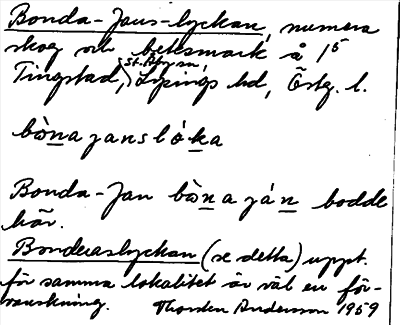 Bonda-Jans-lyckan, numera
skog och betesmark å 1⁵
Tingstad, Lysings hd, Östg. l.
bo̊naɉanslóka
Bonda-Jan bo̊naɉán bodde
här.
Bondeaslyckan (se detta) uppt.
för samma lokalitet är väl en för-
vanskning. Thorsten Andersson 1959